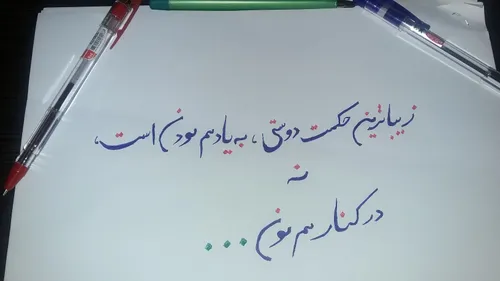 زیباترین حکمت دوستی، به یاد هم بودن است،
نه
در کنار هم بودن...